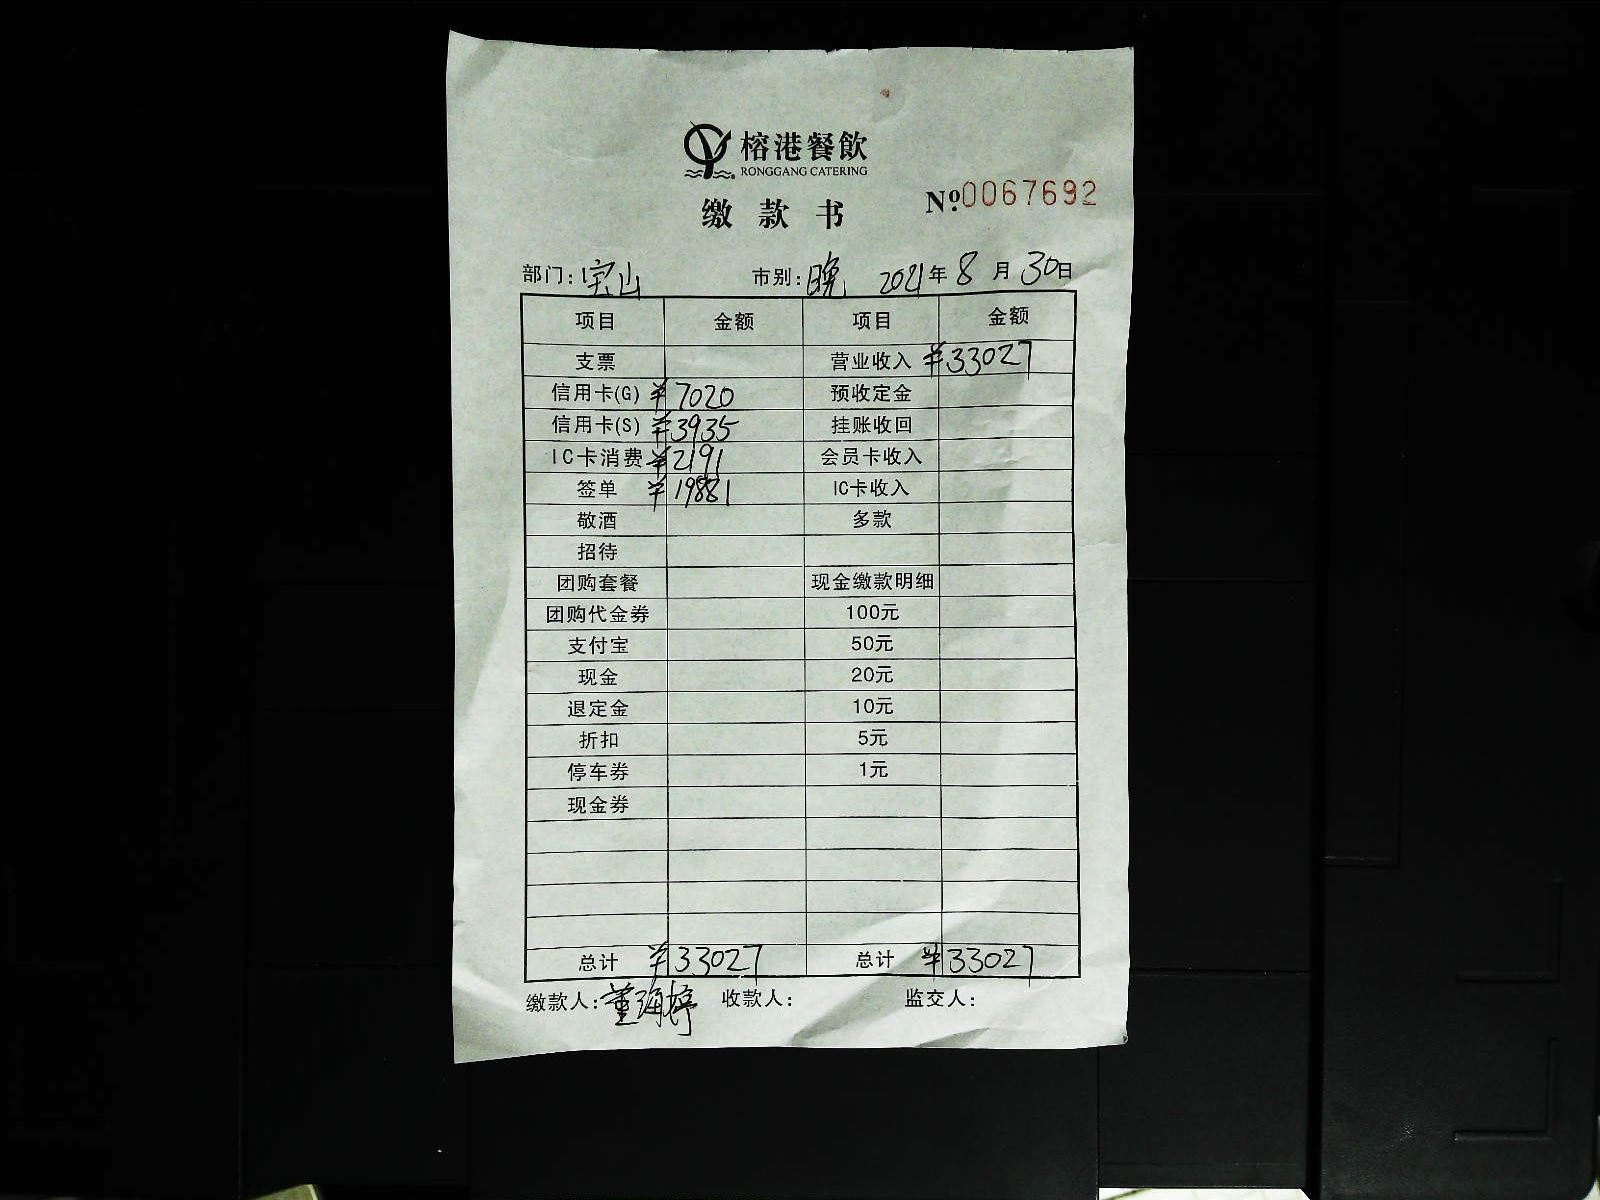 榕港餐飲
RONGGANG CATERING
缴款书
Nº.0067692
部门：宝山 市别：晚 2021年8月30日
项目 金额 项目 金额
支票 营业收入 ¥33027
信用卡(G) ¥7020 预收定金
信用卡(S) ¥3935 挂账收回
IC卡消费 ¥2191 会员卡收入
签单 ¥19881 IC卡收入
敬酒 多款
招待
团购套餐 现金缴款明细
团购代金券 100元
支付宝 50元
现金 20元
退定金 10元
折扣 5元
停车券 1元
现金券
总计 ¥33027 总计 ¥33027
缴款人：董海婷 收款人： 监交人：